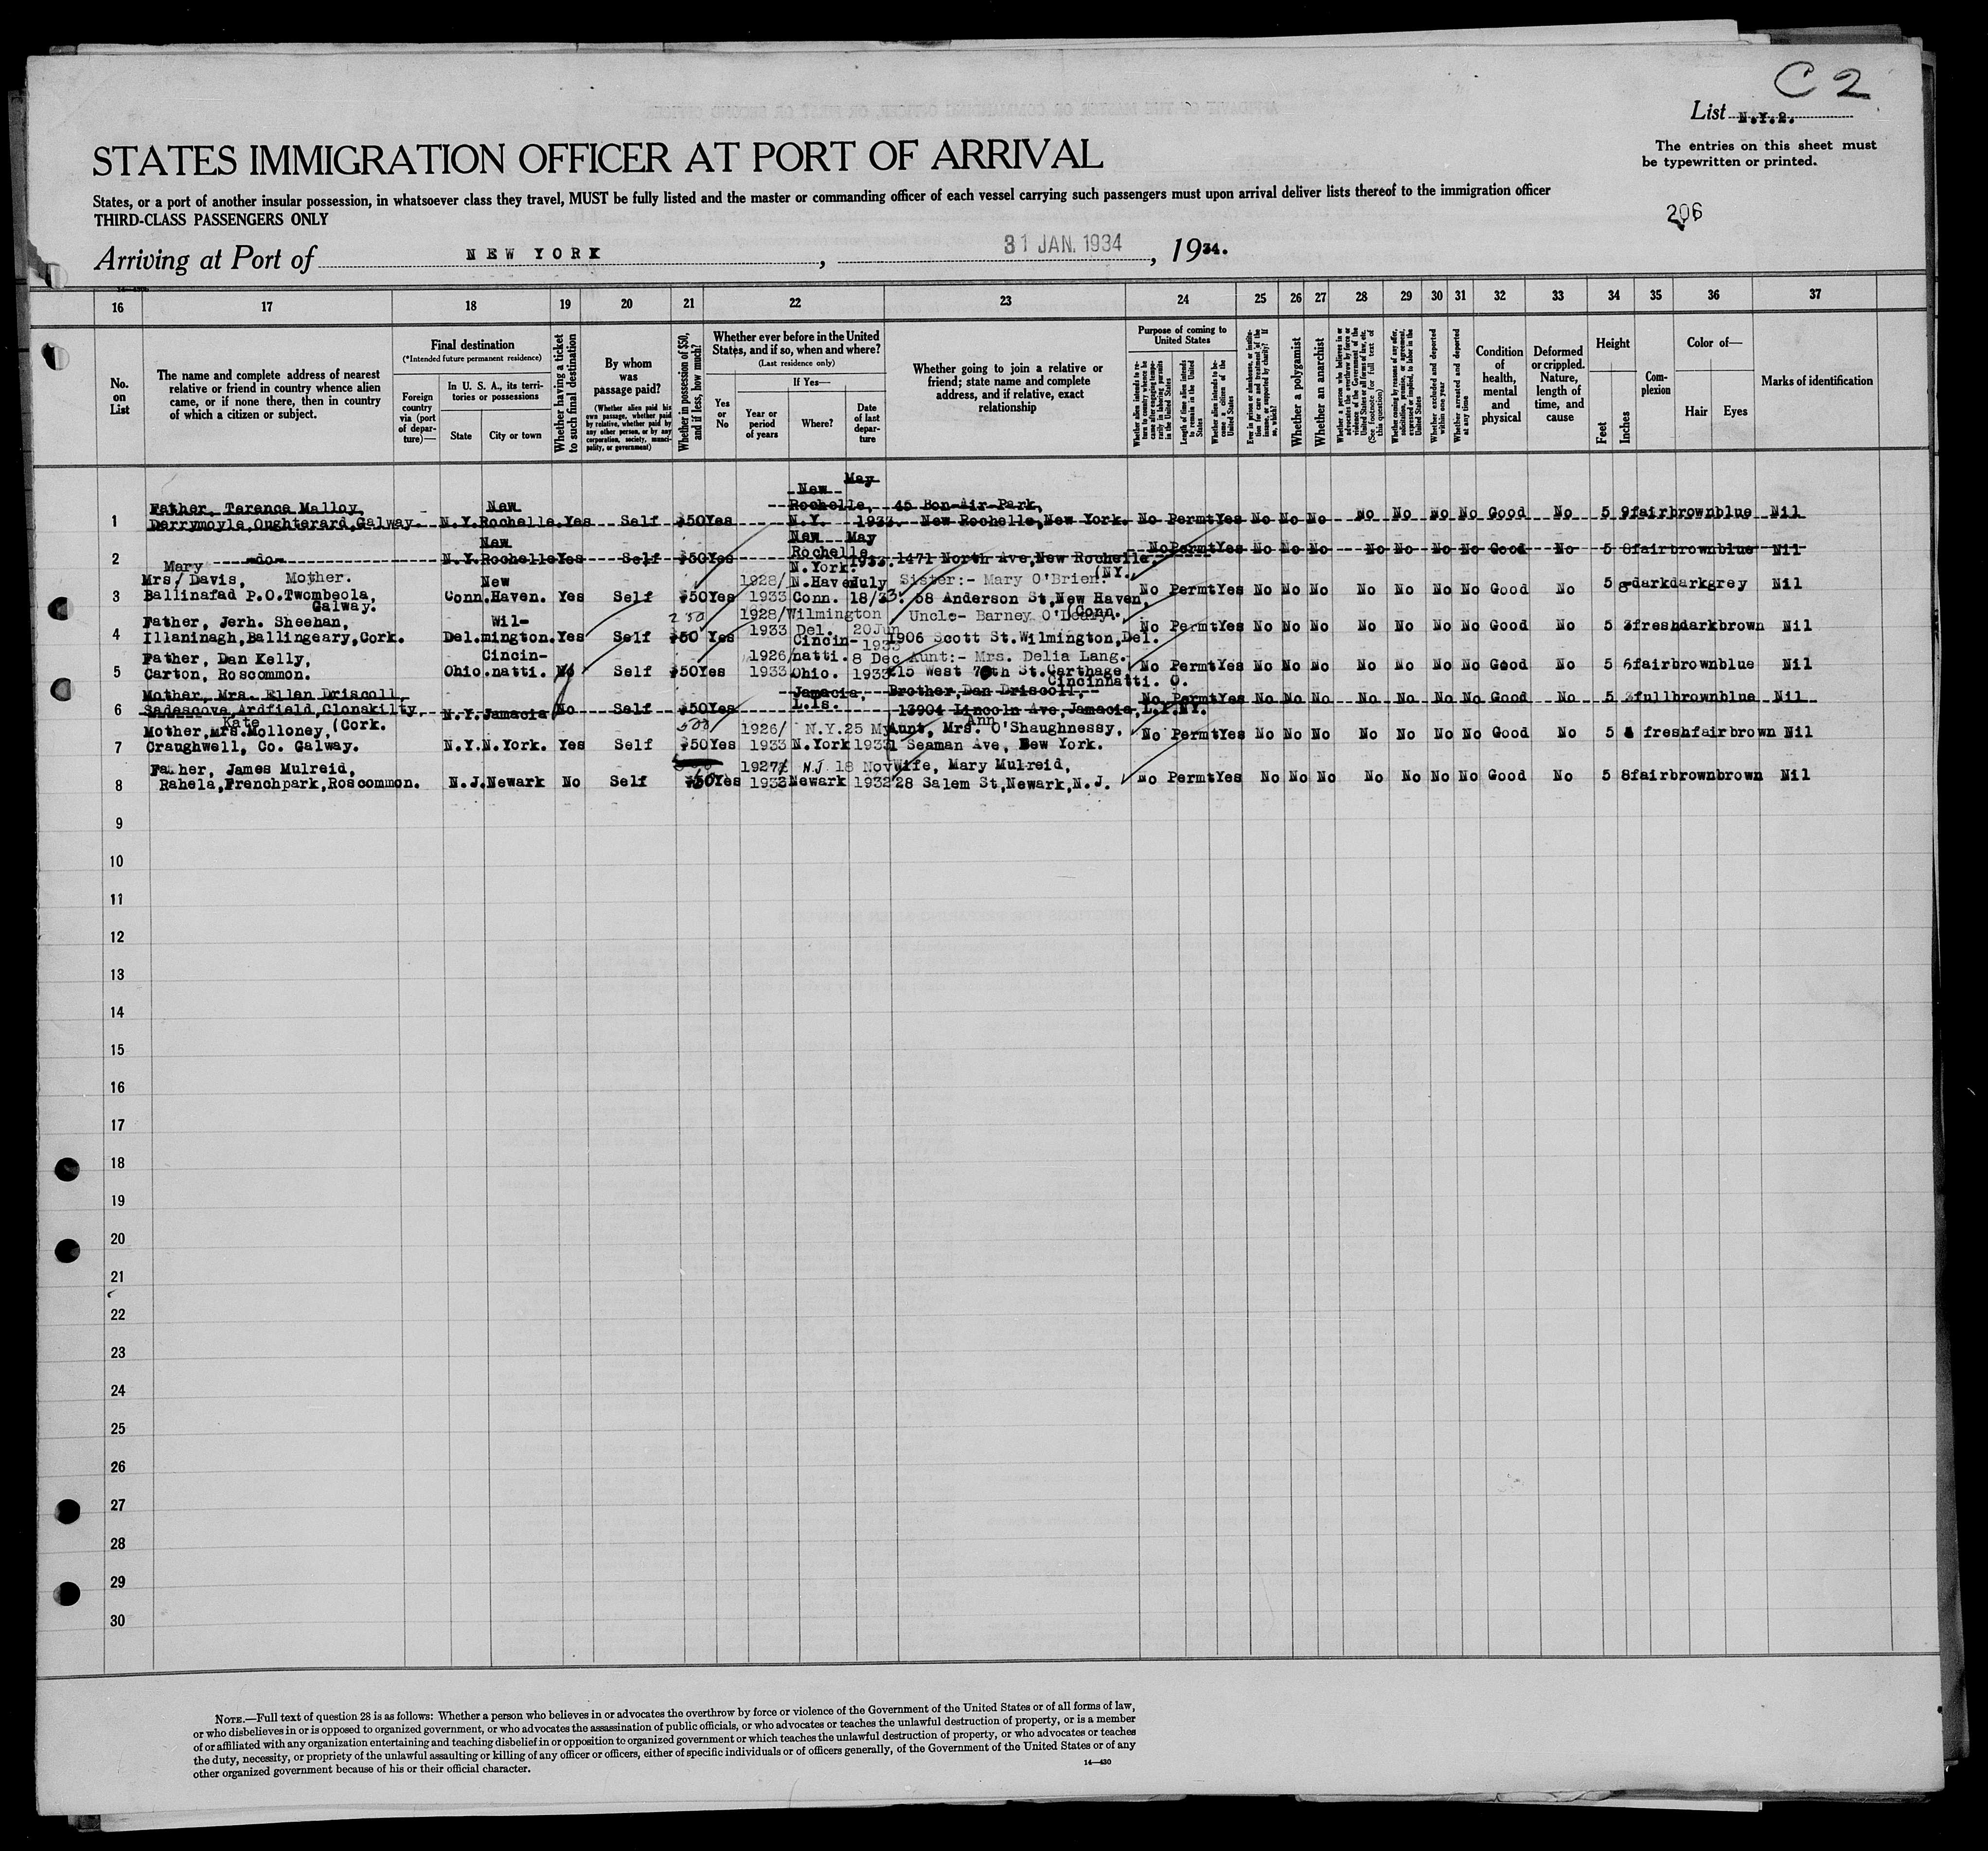 C 2
List N.Y.2.
The entries on this sheet must
be typewritten or printed.
STATES IMMIGRATION OFFICER AT PORT OF ARRIVAL
States, or a port of another insular possession, in whatsoever class they travel, MUST be fully listed and the master or commanding officer of each vessel carrying such passengers must upon arrival deliver lists thereof to the immigration officer
THIRD-CLASS PASSENGERS ONLY
206
Arriving at Port of NEW YORK, 31 JAN. 1934, 1934.
16 17 18 19 20 21 22 23 24 25 26 27 28 29 30 31 32 33 34 35 36 37
No. on List
The name and complete address of nearest
relative or friend in country whence alien
came, or if none there, then in country
of which a citizen or subject.
Final destination
(*Intended future permanent residence)
Foreign country via (port of departure)—
In U. S. A., its territories or possessions
State
City or town
Whether having a ticket to such final destination
By whom was passage paid?
(Whether alien paid his own passage, whether paid by relative, whether paid by any other person, or by any corporation, society, municipality, or government)
Whether in possession of $50, and if less, how much?
Whether ever before in the United
States, and if so, when and where?
(Last residence only)
Yes or No
If Yes—
Year or period of years
Where?
Date of last departure
Whether going to join a relative or
friend; state name and complete
address, and if relative, exact
relationship
Purpose of coming to United States
Whether alien intends to return to country whence he came after engaging temporarily in laboring pursuits in the United States
Length of time alien intends to remain in the United States
Whether alien intends to become a citizen of the United States
Ever in prison or almshouse, or institution for care and treatment of the insane, or supported by charity? If so, which?
Whether a polygamist
Whether an anarchist
Whether a person who believes in or advocates the overthrow by force or violence of the Government of the United States or all forms of law, etc. (See footnote for full text of this question)
Whether coming by reasons of any offer, solicitation, promise, or agreement, expressed or implied, to labor in the United States
Whether excluded and deported within one year
Whether arrested and deported at any time
Condition of health, mental and physical
Deformed or crippled. Nature, length of time, and cause
Height
Feet
Inches
Complexion
Color of—
Hair
Eyes
Marks of identification
New May
Father, Terence Malloy, New Rochelle, 45 Bon-Air-Park,
1 Derrymoyle,Oughterard,Galway. N.Y. Rochelle. Yes Self $50 Yes N.Y. 1933. New Rochelle,New York. No Permt Yes No No No No No No No Good No 5 9 fair brown blue Nil
New New May
2 -do- N.Y. Rochelle Yes Self $50 Yes Rochelle N.York. 1933. 1471 North Ave,New Rochelle. (NY. No Permt Yes No No No No No No No Good No 5 8 fair brown blue Nil
Mary
Mrs/ Davis, Mother. New 1928/ N.Haven July Sister:- Mary O'Brien.
3 Ballinafad P.O.Twombeola, Conn. Haven. Yes Self $50 Yes 1933 Conn. 18/33. 58 Anderson St,New Haven, No Permt Yes No No No No No No No Good No 5 8 dark dark grey Nil
Galway. 250 (Conn.
Father, Jerh. Sheehan, Wil- 1928/ Wilmington Uncle- Barney O'Leary.
4 Illaninagh,Ballingeary,Cork. Del. mington. Yes Self $50 Yes 1933 Del. 20Jun 1933 1906 Scott St.Wilmington,Del. No Permt Yes No No No No No No No Good No 5 3 fresh dark brown Nil
Father, Dan Kelly, Cincin- 1926/ Cincin- natti. 8 Dec Aunt:- Mrs. Delia Lang.
5 Carton, Roscommon. Ohio. natti. No Self $50 Yes 1933 Ohio. 1933 215 West 70th St.Carthage No Permt Yes No No No No No No No Good No 5 6 fair brown blue Nil
Cincinnatti. O.
Mother, Mrs. Ellen Driscoll, Jamacia, Brother,Dan Driscoll,
6 Sadescove,Ardfield,Clonakilty, N.Y. Jamacia No Self $50 Yes L.Is. 13904 Lincoln Ave,Jamacia,L.I.NY. No Permt Yes No No No No No No No Good No 5 3 full brown blue Nil
Kate (Cork. 500 Ann
Mother,Mrs.Molloney, 1926/ N.Y. 25 My Aunt, Mrs. O'Shaughnessy,
7 Craughwell, Co. Galway. N.Y. N.York. Yes Self $50 Yes 1933 N.York 1933 1 Seaman Ave, New York. No Permt Yes No No No No No No No Good No 5 fresh fair brown Nil
Father, James Mulreid, 1927/ NJ 18 Nov Wife, Mary Mulreid,
8 Rahela,Frenchpark,Roscommon. N.J. Newark No Self $50 Yes 1933 Newark 1932 28 Salem St,Newark,N.J. No Permt Yes No No No No No No No Good No 5 8 fair brown brown Nil
9
10
11
12
13
14
15
16
17
18
19
20
21
22
23
24
25
26
27
28
29
30
NOTE.—Full text of question 28 is as follows: Whether a person who believes in or advocates the overthrow by force or violence of the Government of the United States or of all forms of law,
or who disbelieves in or is opposed to organized government, or who advocates the assassination of public officials, or who advocates or teaches the unlawful destruction of property, or is a member
of or affiliated with any organization entertaining and teaching disbelief in or opposition to organized government or which teaches the unlawful destruction of property, or who advocates or teaches
the duty, necessity, or propriety of the unlawful assaulting or killing of any officer or officers, either of specific individuals or of officers generally, of the Government of the United States or of any
other organized government because of his or their official character.
14—430